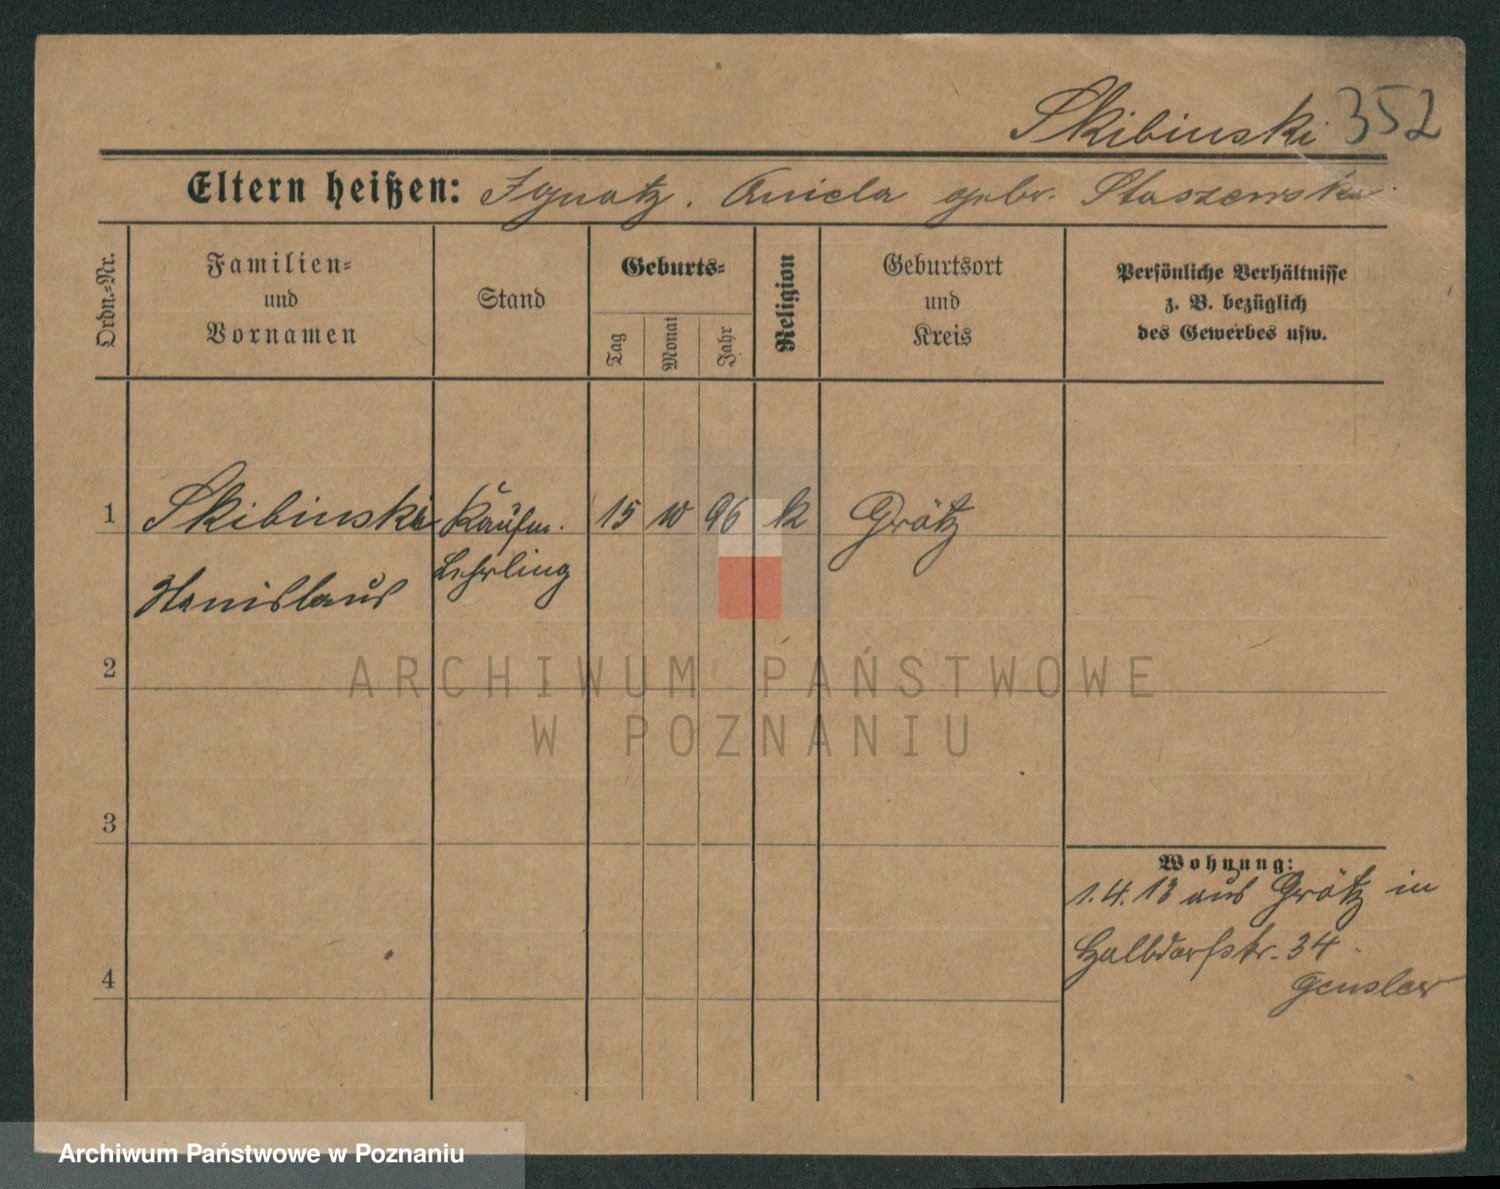 Skibinski 352
Eltern heißen: Ignatz. Aniela gebr. Staszewska
Ordn.-Nr.
Familien-
und
Vornamen
Stand
Geburts-
Tag
Monat
Jahr
Religion
Geburtsort
und
Kreis
Persönliche Verhältnisse
z. B. bezüglich
des Gewerbes usw.
1 Skibinski Kaufm. 15 10 96 k Grätz
Lehrling
Stanislaus
2
3
4
Wohnung:
1.4.13 aus Grätz in
Halbdorfstr. 34
Gensler
ARCHIWUM PAŃSTWOWE
W POZNANIU
Archiwum Państwowe w Poznaniu